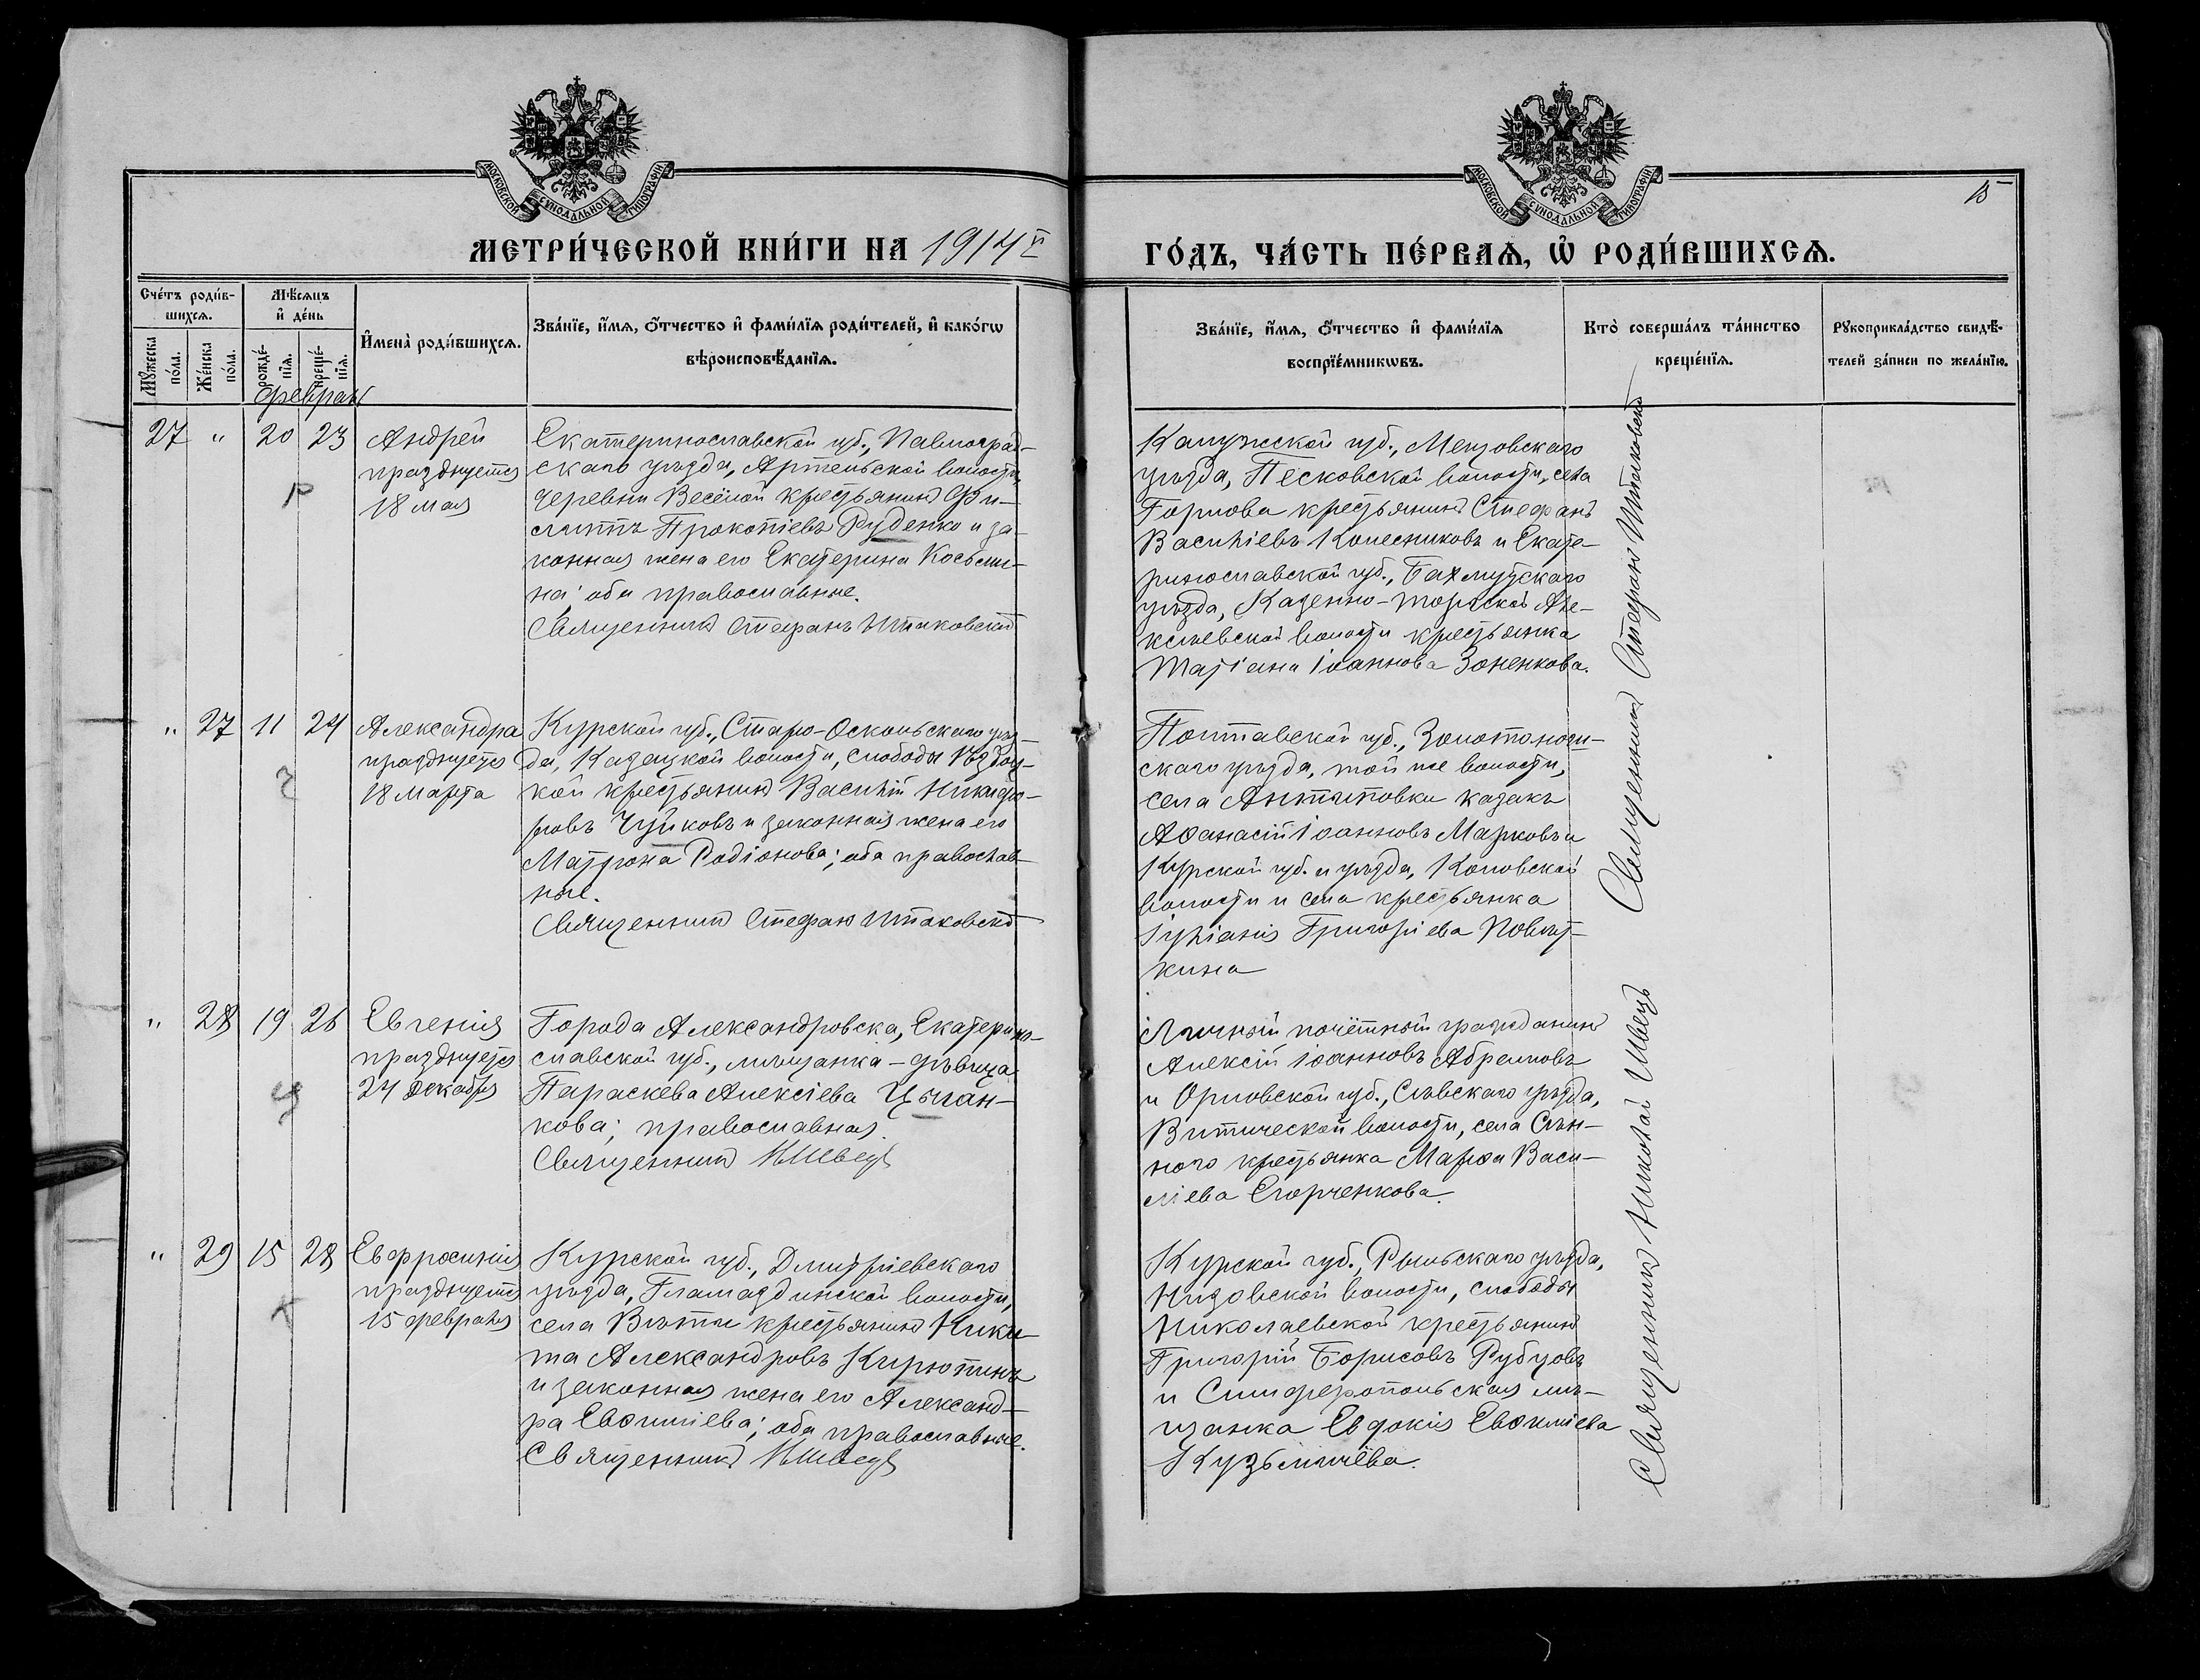 МОСКОВСКОЙ СУНОДАЛЬНОЙ ТИПОГРАФІИ
МОСКОВСКОЙ СУНОДАЛЬНОЙ ТИПОГРАФІИ
15
МЕТРИ́ЧЕСКОЙ КНИ́ГИ НА 1914й ГО́ДЪ, ЧА́СТЬ ПЕ́РВАѦ, Ѡ҆ РОДИ́ВШИХСѦ.
Сче́тъ роди́в-
шихсѧ.
Мѣ́сѧцъ
и҆ де́нь
Мꙋ́жеска по́ла.
Же́нска по́ла.
рожде́-
нїѧ.
креще́-
нїѧ.
И҆мена̀ роди́вшихсѧ.
Зва́нїе, и҆́мѧ, ѻ҆́тчество и҆ фами́лїѧ роди́телей, и҆ како́гѡ
вѣроисповѣ́данїѧ.
Зва́нїе, и҆́мѧ, ѻ҆́тчество и҆ фами́лїѧ
воспрїе́мникѡвъ.
Кто̀ соверша́лъ та́инство
креще́нїѧ.
Рꙋкоприкла́дство свидѣ́-
телей за́писи по жела́нїю.
Февраль
27 " 20 23
Андрей
празднуется
18 мая
Екатеринославской губ., Павлоград-
скаго уѣзда, Артельской волости,
деревни Весёлой крестьянинъ Фи-
липпъ Прокопіевъ Руденко и за-
конная жена его Екатерина Косьми-
на; оба православные.
Священникъ Стефанъ Штаковскій
Калужской губ., Мещовскаго
уѣзда, Песковской волости, села
Горлова крестьянинъ Стефанъ
Василіевъ Колесниковъ и Екате-
ринославской губ., Бахмутскаго
уѣзда, Казенно-Торской Але-
ксѣевской волости крестьянка
Татіана Іоаннова Зоненкова.
Священникъ Стефанъ Штаковскій
" 27 11 24
Александра
празднуется
18 марта
Курской губ., Старо-Оскольскаго уѣз-
да, Казацкой волости, слободы Ѣздоц-
кой крестьянинъ Василій Никифо-
ровъ Чуйковъ и законная жена его
Матрона Родіонова; оба православ-
ные.
Священникъ Стефанъ Штаковскій
Полтавской губ., Золотонош-
скаго уѣзда, той же волости,
села Антиповки казакъ
Аѳанасій Іоанновъ Марковъ и
Курской губ. и уѣзда,
волости и села крестьянка
Іуліанія Григоріева Повѣт-
кина
" 28 19 26
Евгенія
празднуется
24 декабря
Города Александровска, Екатерино-
славской губ., мѣщанка-дѣвица
Параскева Алексіева Цыган-
кова; православная.
Священникъ Н Швецъ
Личный почётный гражданинъ
Алексій Іоанновъ Абрамовъ
и Орловской губ., Сѣвскаго уѣзда,
Витической волости, села Сѣн-
ного крестьянка Марѳа Васи-
ліева Егорченкова.
Священникъ Николай Швецъ
" 29 15 28
Евфросинія
празднуется
15 февраля
Курской губ., Дмитріевскаго
уѣзда, Гламаздинской волости,
села Вѣти крестьянинъ Ники-
та Александровъ Кирютинъ
и законная жена его Александ-
ра Евѳиміева; оба православные.
Священникъ Н Швецъ
Курской губ., Рыльскаго уѣзда,
Низовской волости, слободы
Николаевской крестьянинъ
Григорій Борисовъ Рубцовъ
и Симферопольская мѣ-
щанка Евдокія Евѳиміева
Кузьмичёва.